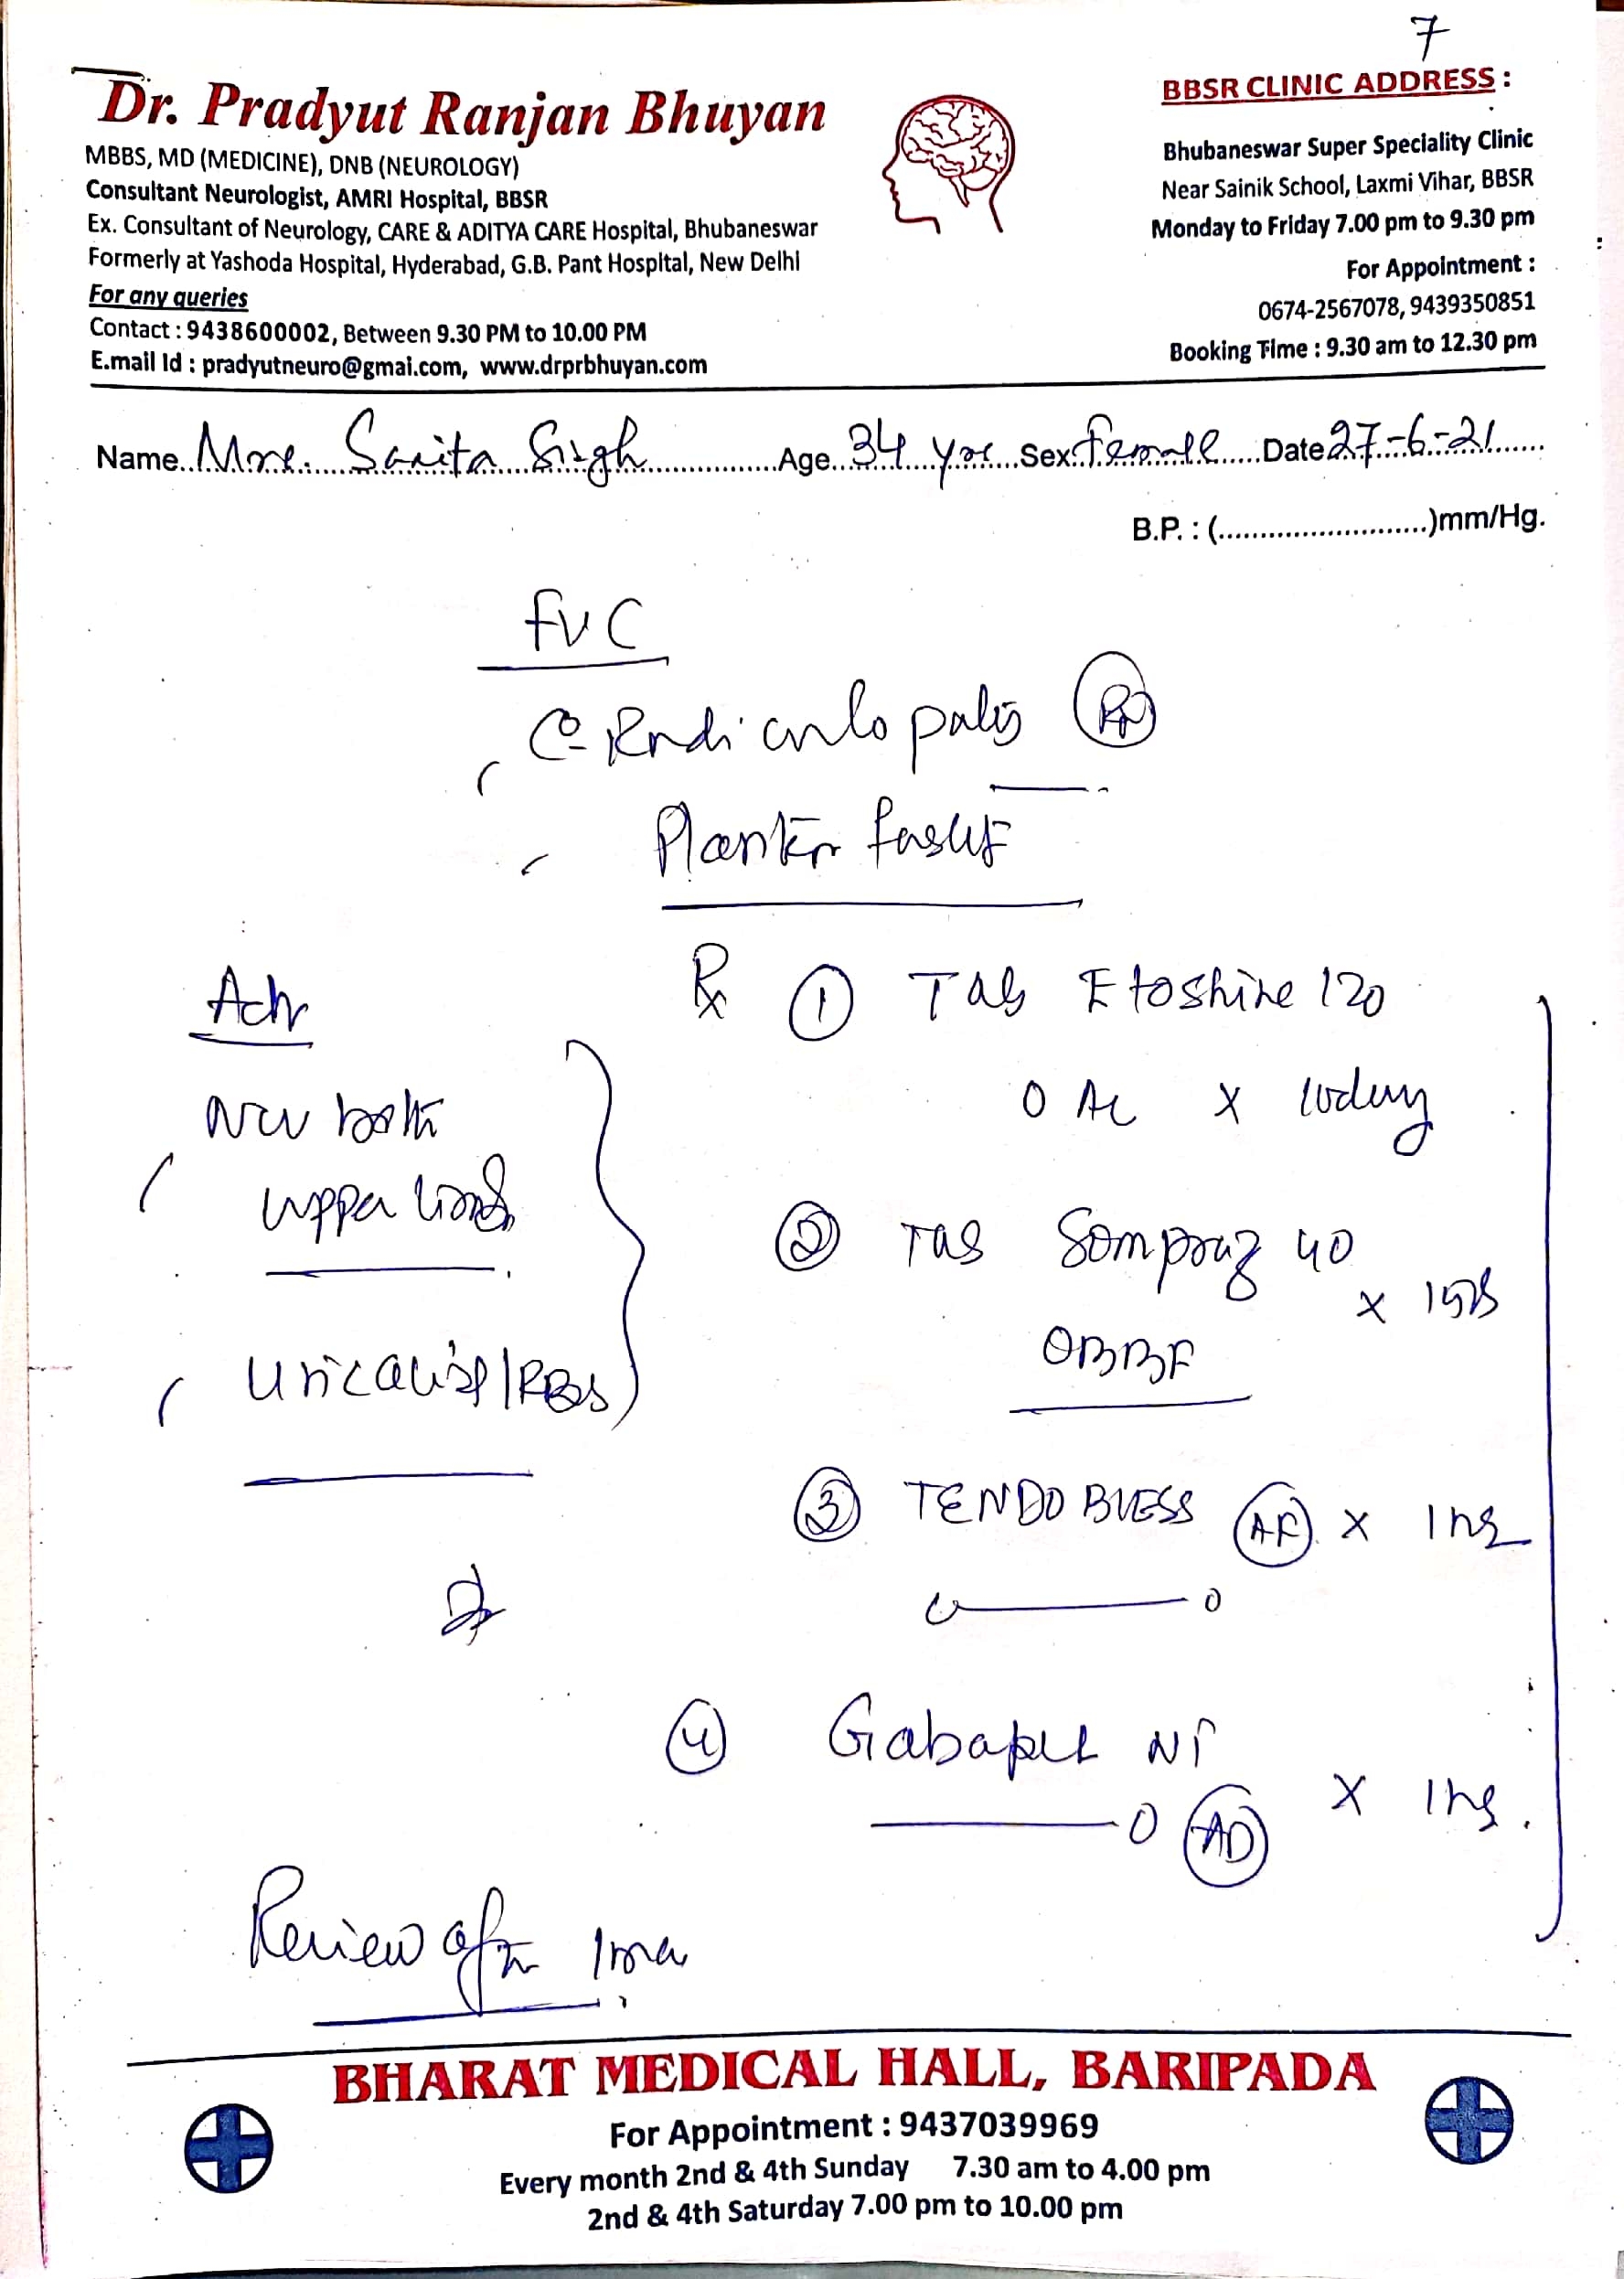 7
Dr. Pradyut Ranjan Bhuyan
MBBS, MD (MEDICINE), DNB (NEUROLOGY)
Consultant Neurologist, AMRI Hospital, BBSR
Ex. Consultant of Neurology, CARE & ADITYA CARE Hospital, Bhubaneswar
Formerly at Yashoda Hospital, Hyderabad, G.B. Pant Hospital, New Delhi
For any queries
Contact : 9438600002, Between 9.30 PM to 10.00 PM
E.mail Id : pradyutneuro@gmai.com, www.drprbhuyan.com
BBSR CLINIC ADDRESS :
Bhubaneswar Super Speciality Clinic
Near Sainik School, Laxmi Vihar, BBSR
Monday to Friday 7.00 pm to 9.30 pm
For Appointment :
0674-2567078, 9439350851
Booking Time : 9.30 am to 12.30 pm
Name Mrs. Sarita Singh Age 34 yrs Sex female Date 27-6-21
B.P. : (........................)mm/Hg.
FUC
Planter
Rx ① TAB Etoshine 120
0 AL x 10day
② TAB Sompraz 40
x 15
OBBF
③ TENDOBLESS AF x
④ Gabapet NT
0 AD x
Adv
NCV both
upper limb
Uric acid/RBS
Review after 1
BHARAT MEDICAL HALL, BARIPADA
For Appointment : 9437039969
Every month 2nd & 4th Sunday 7.30 am to 4.00 pm
2nd & 4th Saturday 7.00 pm to 10.00 pm